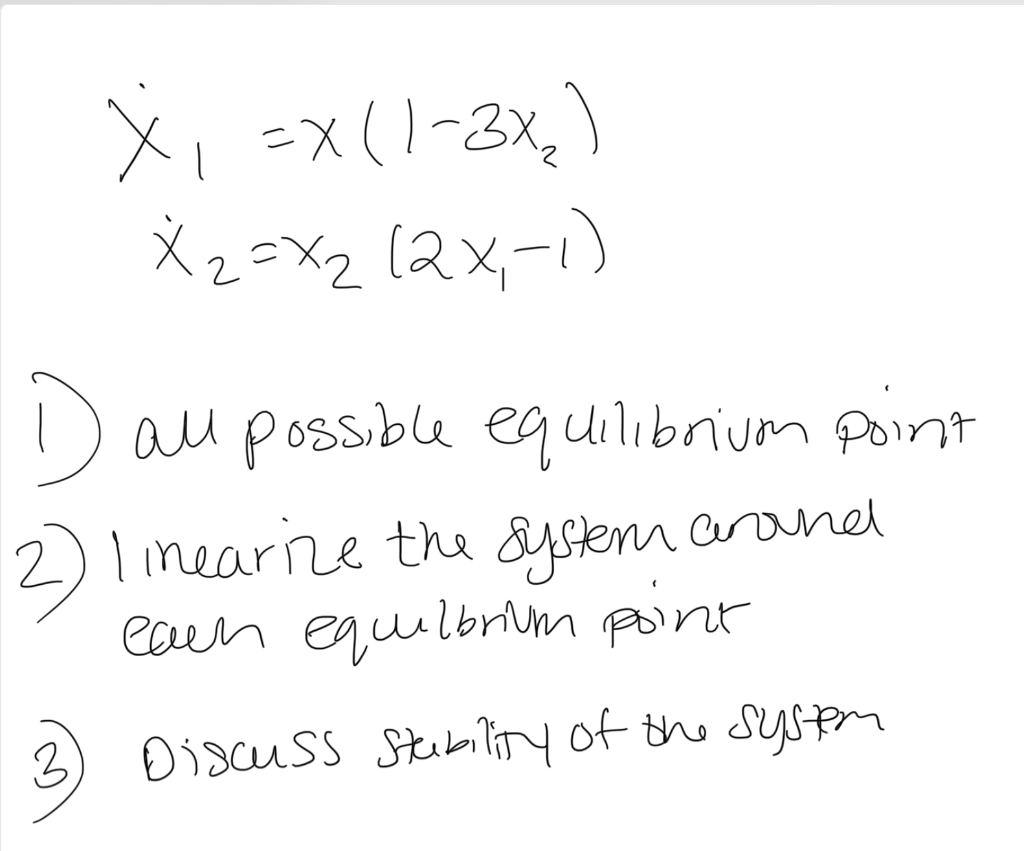 ẋ₁ = x(1-3x₂)
ẋ₂ = x₂(2x₁-1)
1) all possible equilibrium point
2) linearize the system around
each equilbrium point
3) Discuss stability of the system